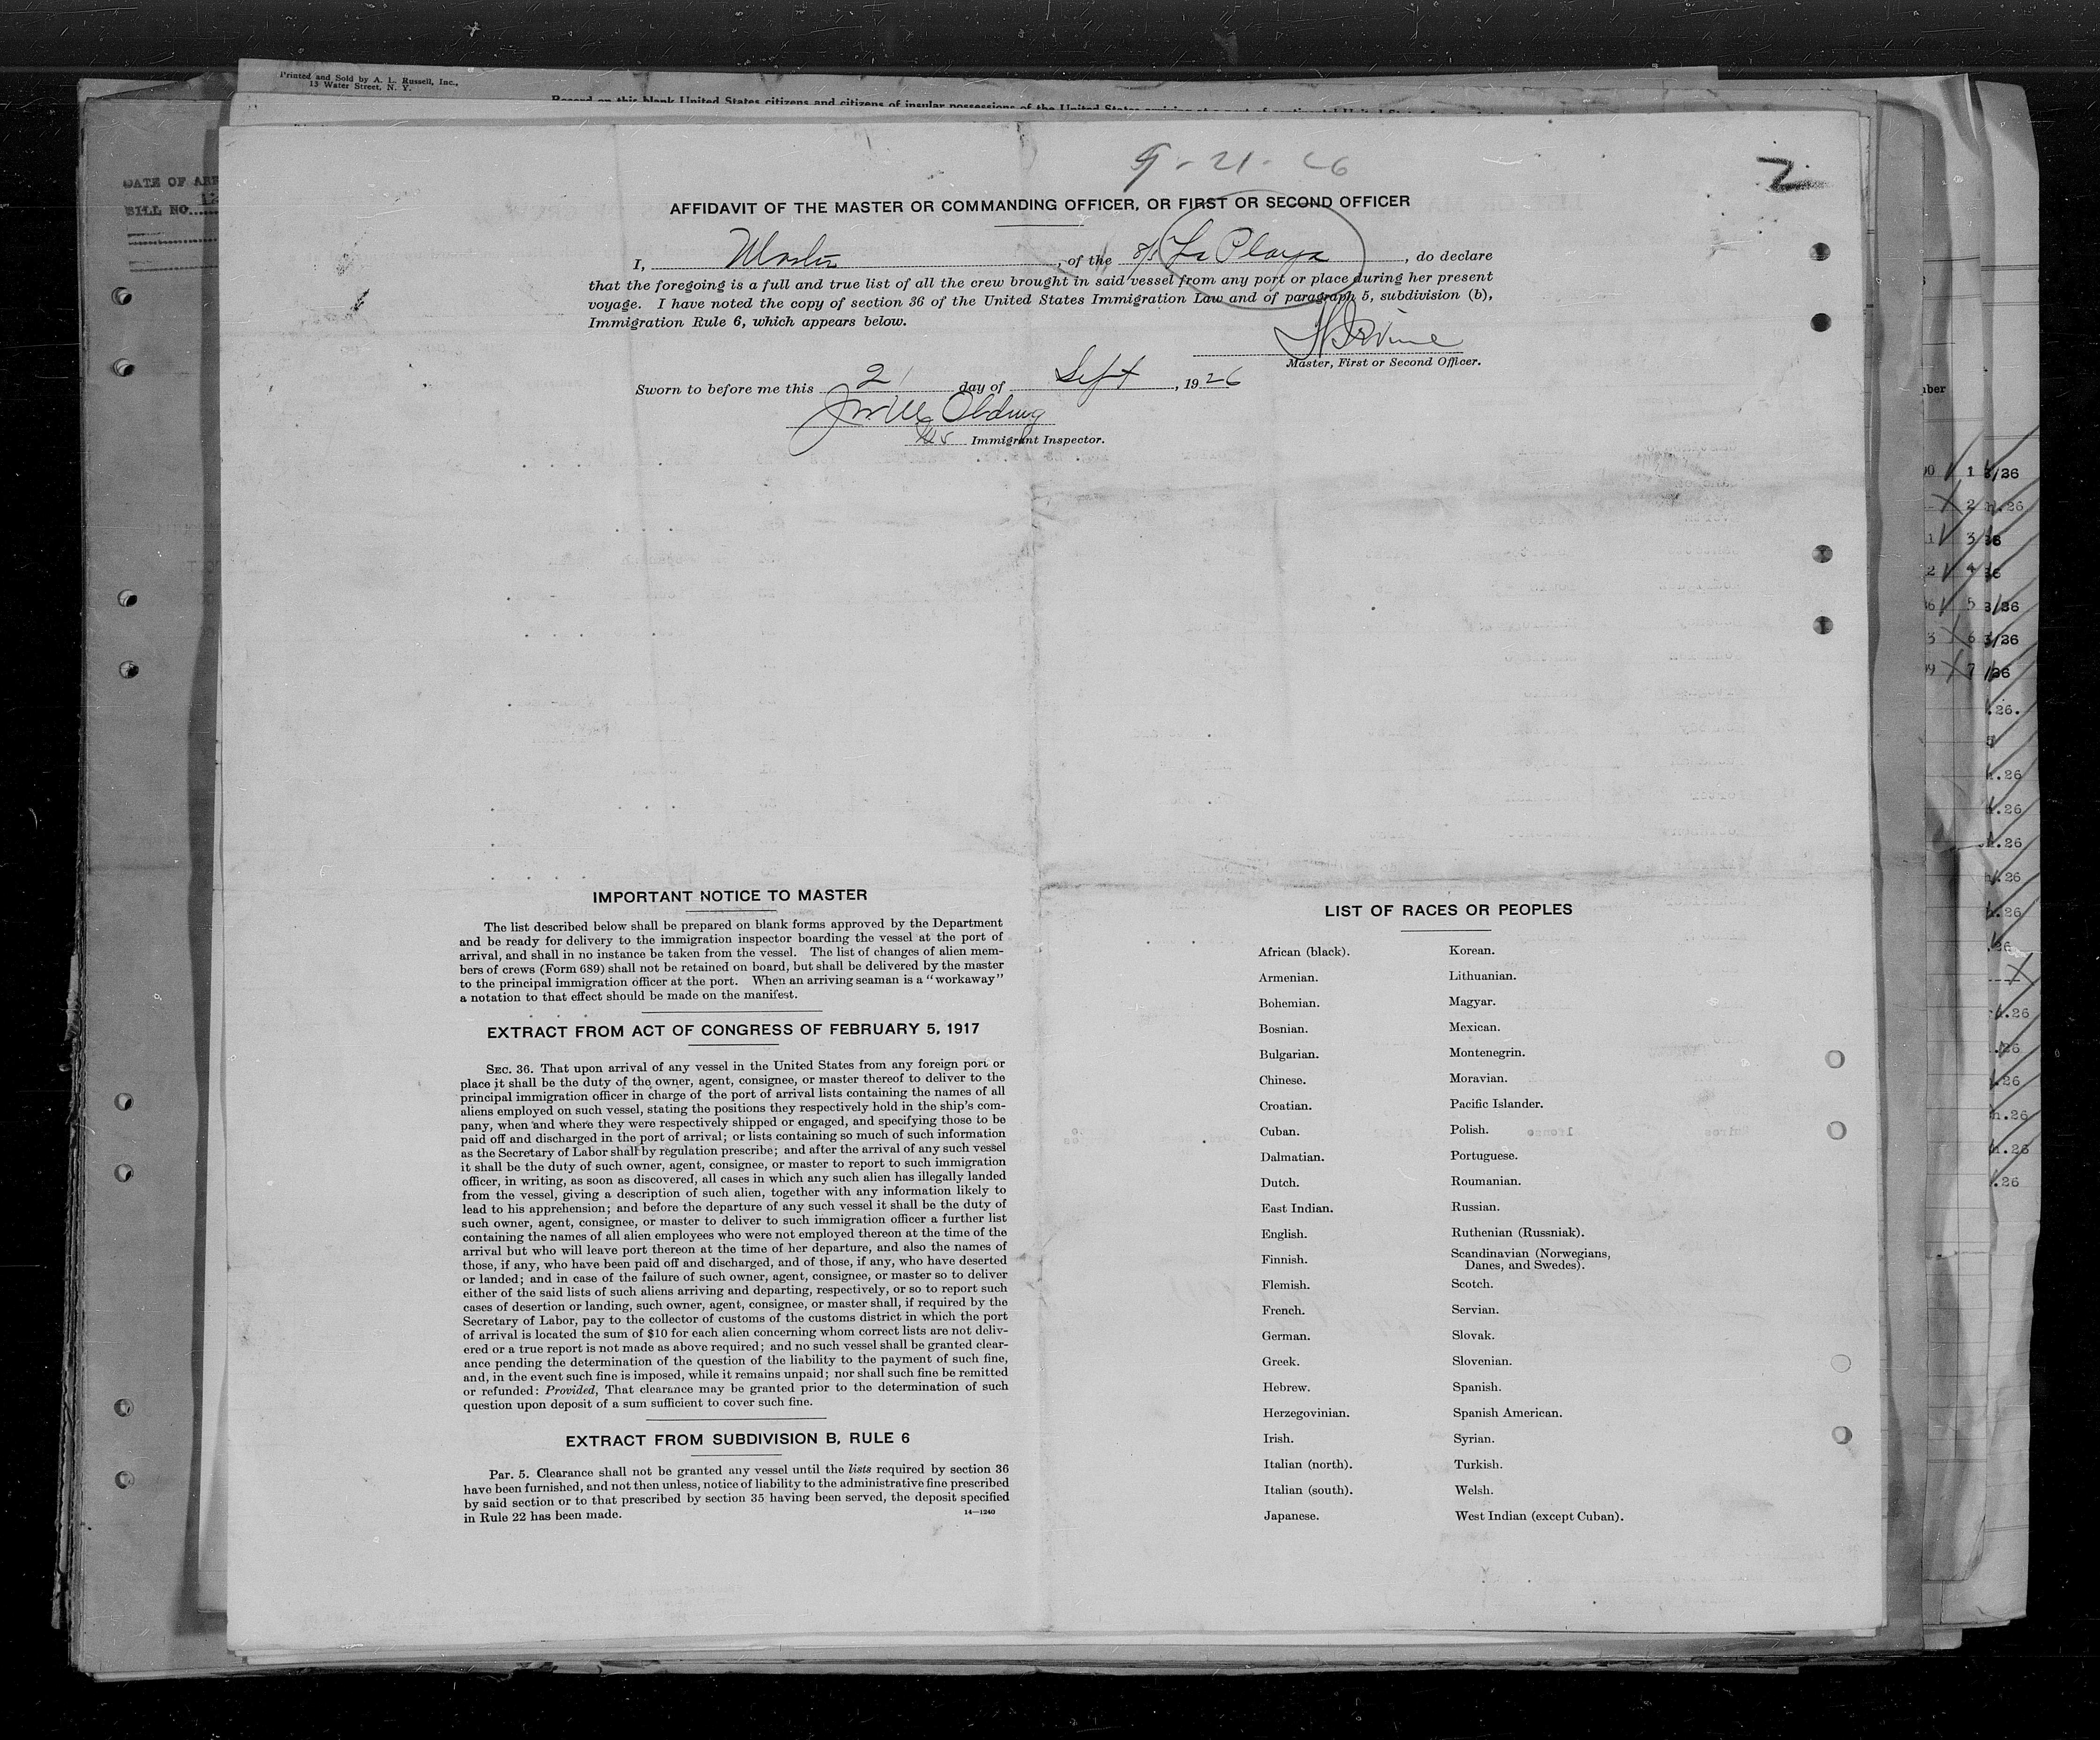 Printed and Sold by A. L. Russell, Inc.,
15 Water Street, N. Y.
Record on this blank United States citizens and citizens of insular possessions of the United States
DATE OF
BILL NO.
9-21-26
2
AFFIDAVIT OF THE MASTER OR COMMANDING OFFICER, OR FIRST OR SECOND OFFICER
I, Master, of the S/S La Playa, do declare
that the foregoing is a full and true list of all the crew brought in said vessel from any port or place during her present
voyage. I have noted the copy of section 36 of the United States Immigration Law and of paragraph 5, subdivision (b),
Immigration Rule 6, which appears below.
Irvine
Master, First or Second Officer.
Sworn to before me this 21 day of Sept, 1926
Immigrant Inspector.
IMPORTANT NOTICE TO MASTER
The list described below shall be prepared on blank forms approved by the Department
and be ready for delivery to the immigration inspector boarding the vessel at the port of
arrival, and shall in no instance be taken from the vessel. The list of changes of alien mem-
bers of crews (Form 689) shall not be retained on board, but shall be delivered by the master
to the principal immigration officer at the port. When an arriving seaman is a "workaway"
a notation to that effect should be made on the manifest.
EXTRACT FROM ACT OF CONGRESS OF FEBRUARY 5, 1917
SEC. 36. That upon arrival of any vessel in the United States from any foreign port or
place it shall be the duty of the owner, agent, consignee, or master thereof to deliver to the
principal immigration officer in charge of the port of arrival lists containing the names of all
aliens employed on such vessel, stating the positions they respectively hold in the ship's com-
pany, when and where they were respectively shipped or engaged, and specifying those to be
paid off and discharged in the port of arrival; or lists containing so much of such information
as the Secretary of Labor shall by regulation prescribe; and after the arrival of any such vessel
it shall be the duty of such owner, agent, consignee, or master to report to such immigration
officer, in writing, as soon as discovered, all cases in which any such alien has illegally landed
from the vessel, giving a description of such alien, together with any information likely to
lead to his apprehension; and before the departure of any such vessel it shall be the duty of
such owner, agent, consignee, or master to deliver to such immigration officer a further list
containing the names of all alien employees who were not employed thereon at the time of the
arrival but who will leave port thereon at the time of her departure, and also the names of
those, if any, who have been paid off and discharged, and of those, if any, who have deserted
or landed; and in case of the failure of such owner, agent, consignee, or master so to deliver
either of the said lists of such aliens arriving and departing, respectively, or so to report such
cases of desertion or landing, such owner, agent, consignee, or master shall, if required by the
Secretary of Labor, pay to the collector of customs of the customs district in which the port
of arrival is located the sum of $10 for each alien concerning whom correct lists are not deliv-
ered or a true report is not made as above required; and no such vessel shall be granted clear-
ance pending the determination of the question of the liability to the payment of such fine,
and, in the event such fine is imposed, while it remains unpaid; nor shall such fine be remitted
or refunded: Provided, That clearance may be granted prior to the determination of such
question upon deposit of a sum sufficient to cover such fine.
EXTRACT FROM SUBDIVISION B, RULE 6
Par. 5. Clearance shall not be granted any vessel until the lists required by section 36
have been furnished, and not then unless, notice of liability to the administrative fine prescribed
by said section or to that prescribed by section 35 having been served, the deposit specified
in Rule 22 has been made.
14—1240
LIST OF RACES OR PEOPLES
African (black). Korean.
Armenian. Lithuanian.
Bohemian. Magyar.
Bosnian. Mexican.
Bulgarian. Montenegrin.
Chinese. Moravian.
Croatian. Pacific Islander.
Cuban. Polish.
Dalmatian. Portuguese.
Dutch. Roumanian.
East Indian. Russian.
English. Ruthenian (Russniak).
Finnish. Scandinavian (Norwegians,
Danes, and Swedes).
Flemish. Scotch.
French. Servian.
German. Slovak.
Greek. Slovenian.
Hebrew. Spanish.
Herzegovinian. Spanish American.
Irish. Syrian.
Italian (north). Turkish.
Italian (south). Welsh.
Japanese. West Indian (except Cuban).